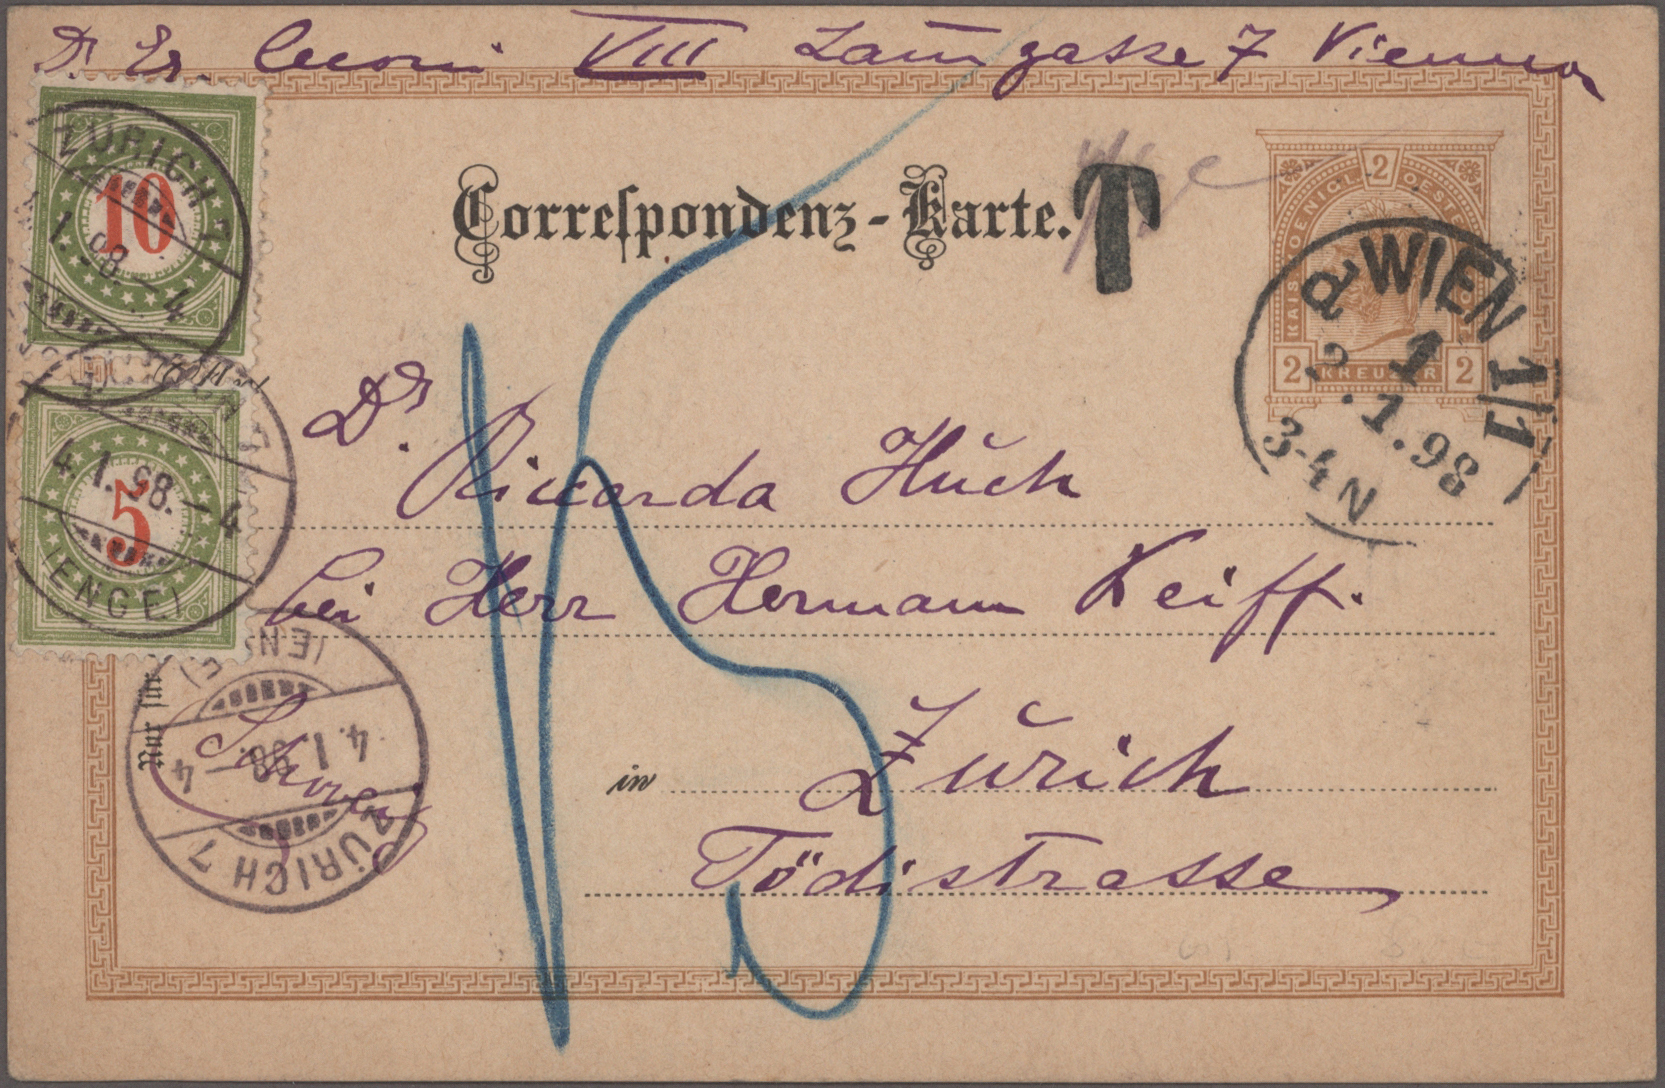 Dr. Er. Ceconi VIII Laungasse 7 Vienna
Correſpondenz-Karte.
T
2
KAIS KOENIGL OESTE
2 KREUZER 2
WIEN 1/1
1
2.1.98
3-4N
ZÜRICH 7
10
1.98.-4
4.1.98.-4
5
(ENGE)
15
Dr. Riccarda Huch
bei Herr Hermann Reiff.
in Zürich
Tödistrasse
Nur für
Schweiz
(ENGE)
4.1.98.-4
ZÜRICH 7